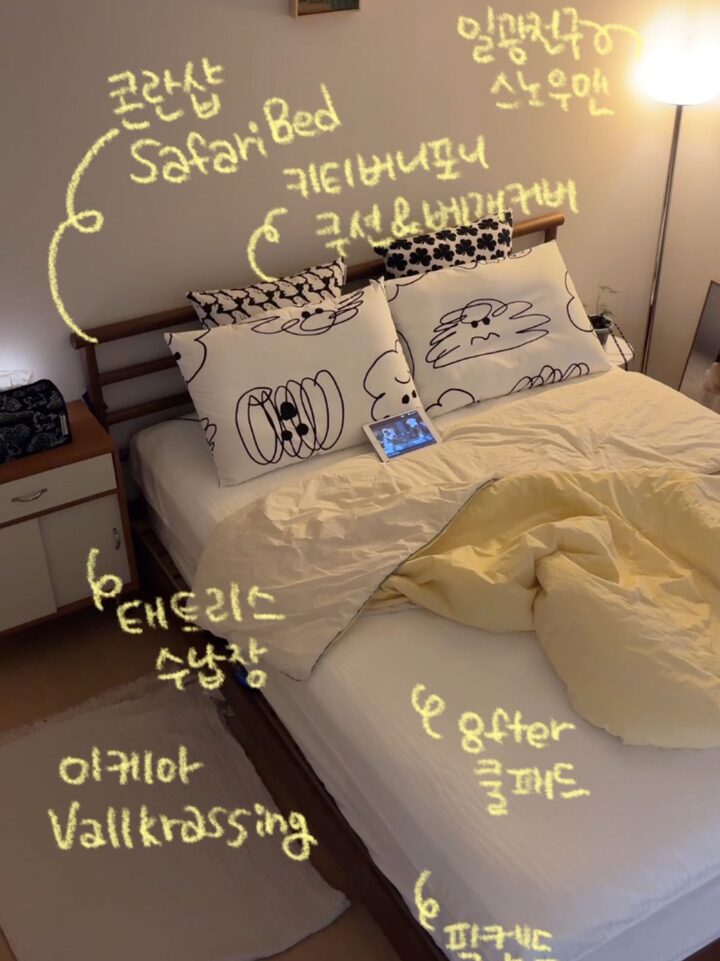 일광전구
스노우맨
콘란샵
Safari Bed
키티버니포니
쿠션&베개커버
태트리스
수납장
8fter
쿨패드
이케아
Vallkrassing